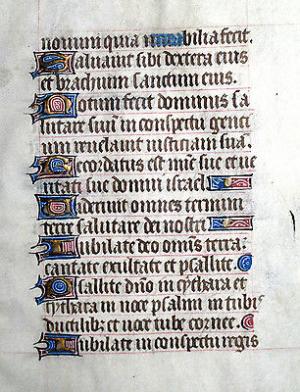 novum quia mirabilia fecit.
Salvavit sibi dextera eius
et brachium sanctum eius.
Notum fecit dominus sa
lutare suu in conspectu genci
um revelavit iusticiam sua.
Recordatus est mie sue et ve
ritati sue domui israel
Viderunt omnes termini
terre salutare dei nostri
Iubilate deo omis terra
cantate exultate et psallite
Psallite dno in cythara et
cythara in voce psalmi in tubis
ductilib; et voce tube cornee.
Iubilate in conspectu regis